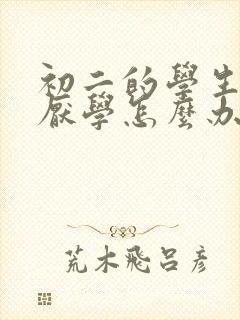 初二的學生
厭學怎麼办
荒木飛呂彥